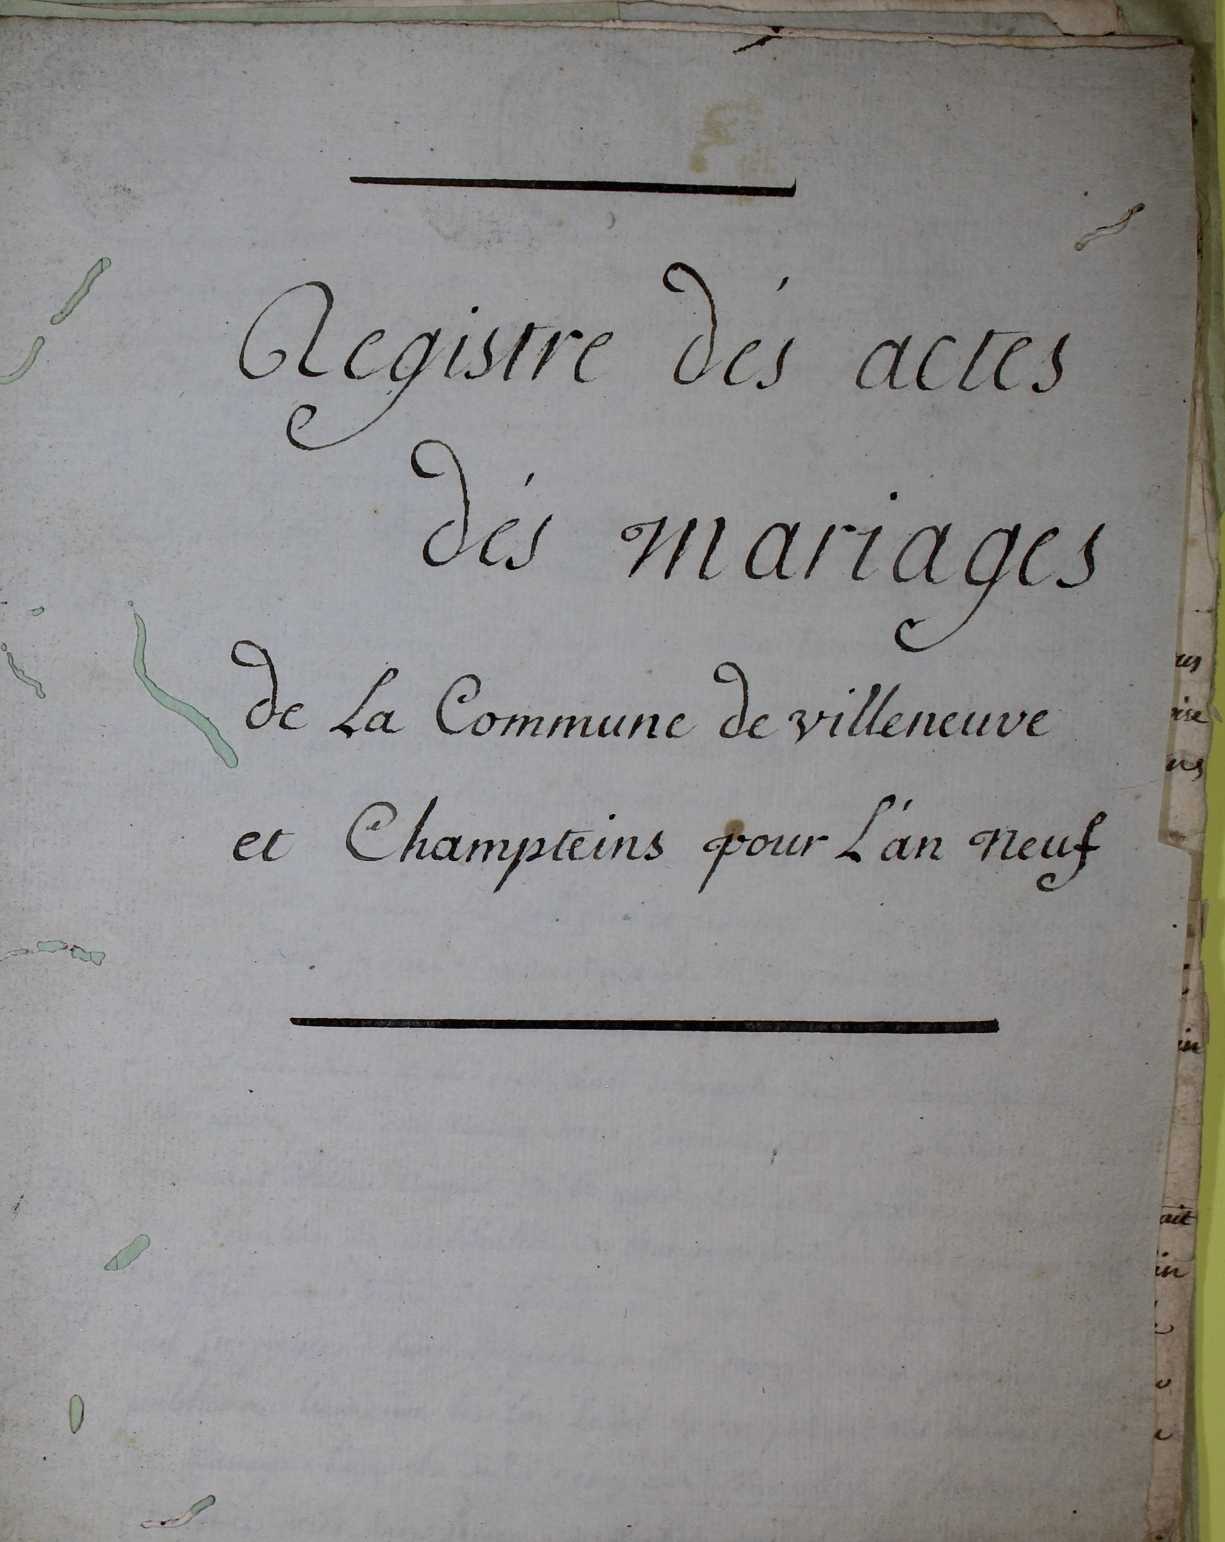 Registre dés actes
dés mariages
de La Commune de villeneuve
et Champteins pour L'án neuf